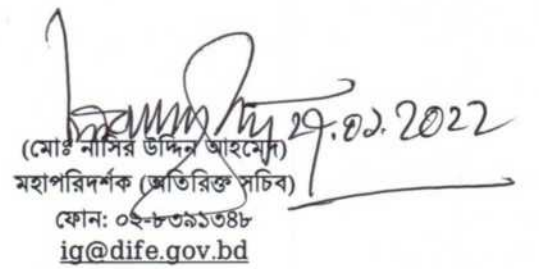 ২৭.০১.2022
(মোঃ নাসির উদ্দিন আহমেদ)
মহাপরিদর্শক (অতিরিক্ত সচিব)
ফোন: ০২-৮৩৯১৩৪৮
ig@dife.gov.bd